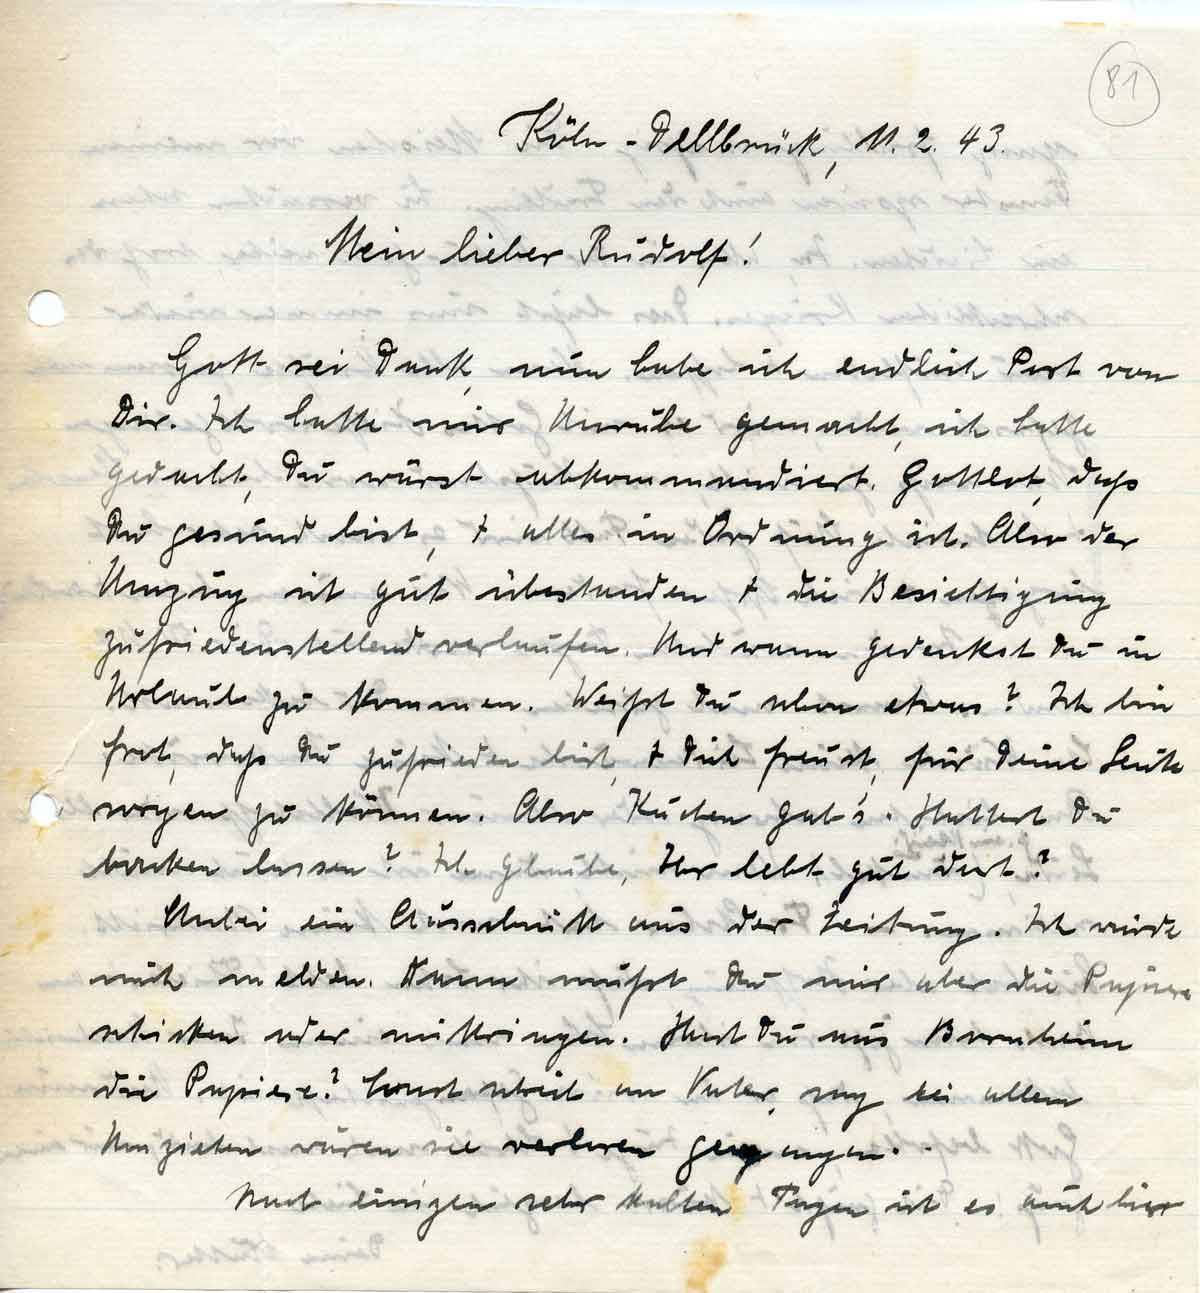 81
Köln-Dellbrück, 11. 2. 43.
Mein lieber Rudolf!
Gott sei Dank, nun habe ich endlich Post von
Dir. Ich hatte mir Unruhe gemacht, ich hatte
gedacht, Du wärst abkommandiert. Gottlob, daß
Du gesund bist, + alles in Ordnung ist. Also der
Umzug ist gut überstanden + die Besichtigung
zufriedenstellend verlaufen. Und wann gedenkst Du in
Urlaub zu kommen. Weißt Du schon etwas? Ich bin
froh, daß Du zufrieden bist, + Dich freust, für Deine Leute
sorgen zu können. Also Kuchen gab's. Hattest Du
backen lassen? Ich glaube, Ihr lebt gut dort?
Anbei ein Ausschnitt aus der Zeitung. Ich würde
mich melden. Dann mußt Du mir aber die Papiere
schicken oder mitbringen. Hast Du aus Bornheim
die Papiere? Sonst schreib an Vater, sag bei allem
Umziehen wären sie verloren gegangen.
Nach einigen sehr kalten Tagen ist es auch hier